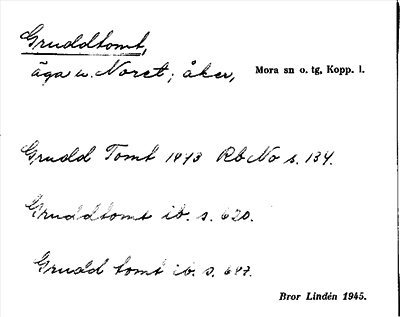 Gruddtomt,
äga u. Noret; åker, Mora sn o. tg, Kopp. l.
Grudd Tomt 1873 Rb No s. 134.
Gruddtomt ib. s. 620.
Grudd tomt ib. s. 647.
Bror Lindén 1945.